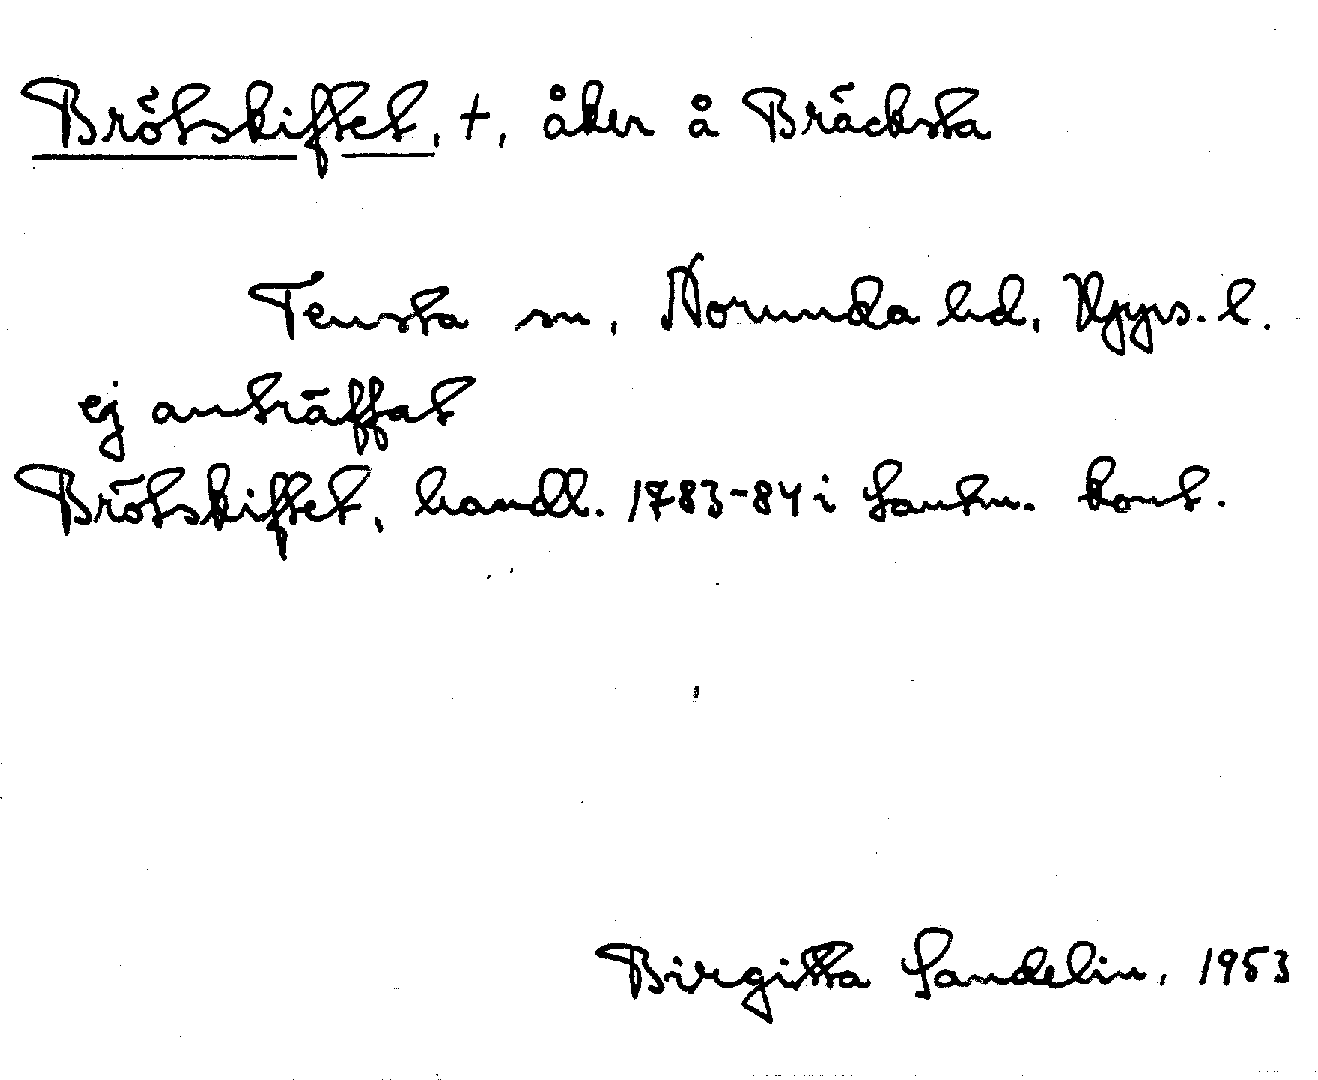 Brötskiftet, +, åker å Bräcksta
Tensta sn, Norunda hd, Upps. l.
ej anträffat
Brötskiftet, handl. 1783-84 i Lantm. kont.
Birgitta Sandelin, 1953